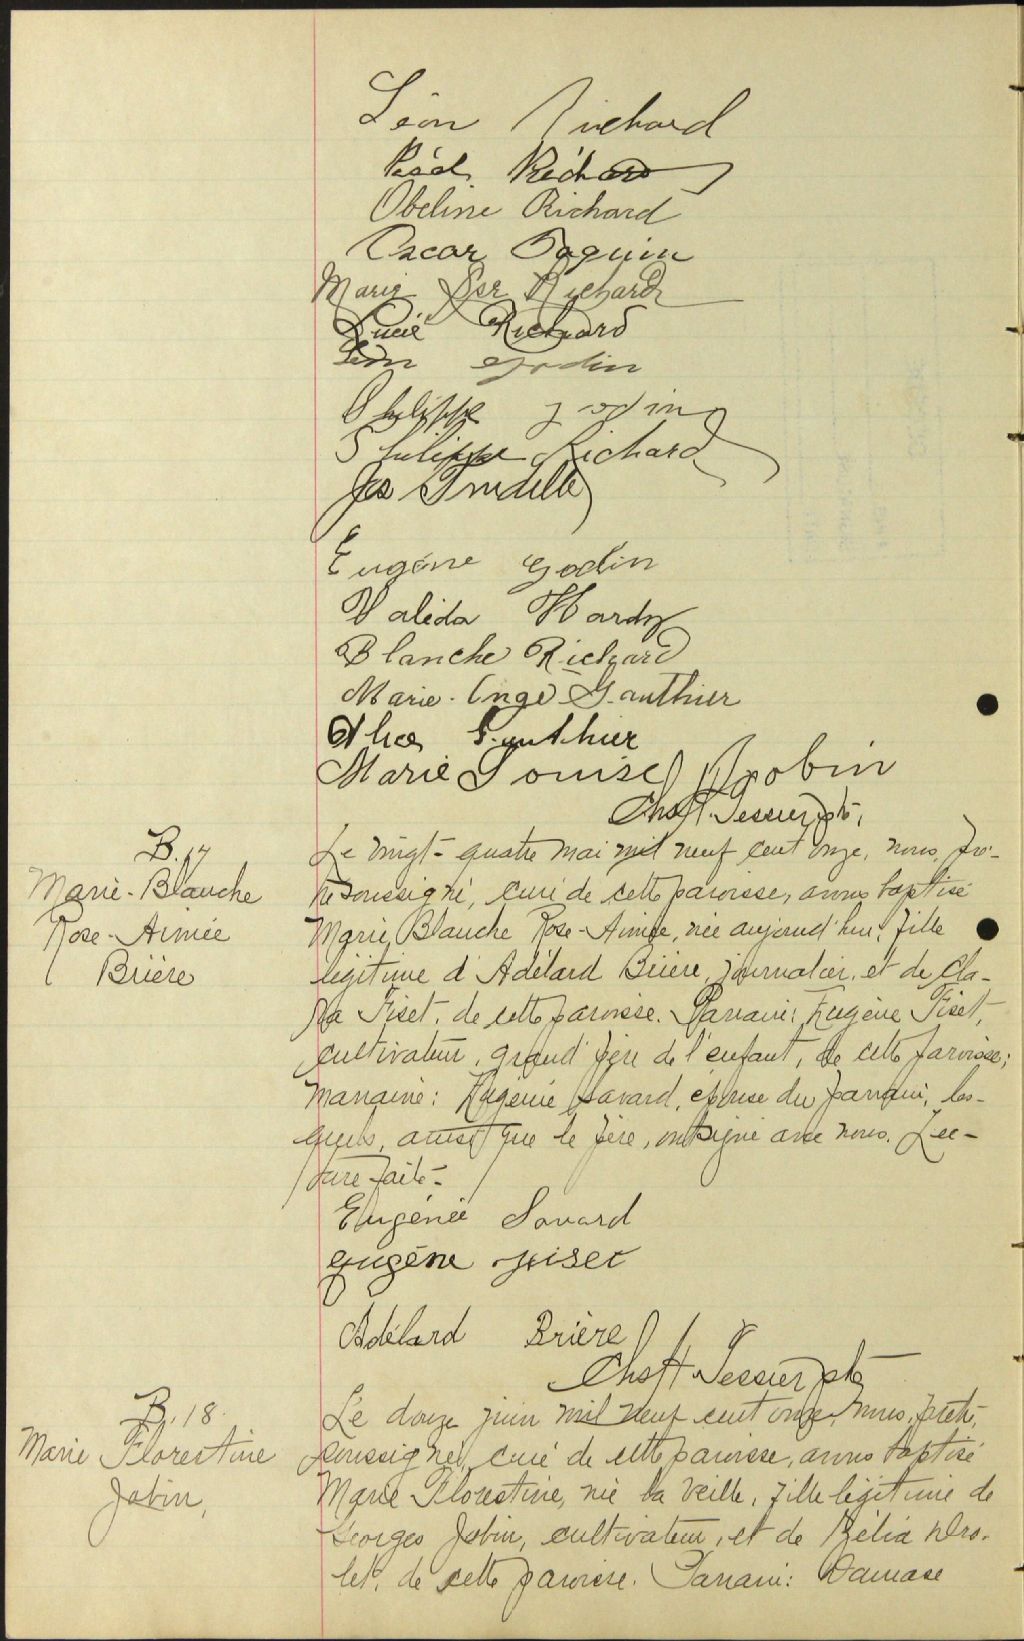 Léon Richard
Richard
Obeline Richard
Oscar Paquin
Marie Richard
Lucie Richard
Léon Godin
Philippe Godin
Philippe Richard
Jos Trudelle
Eugène Godin
Valéda Hardy
Blanche Richard
Marie-Ange Gauthier
Alice Gauthier
Marie Louise Robin
Chs H. Tessier, ptre,
B. 17
Marie-Blanche
Rose-Aimée
Brière
Le vingt-quatre mai mil neuf cent onze, nous, prê-
tre soussigné, curé de cette paroisse, avons baptisé
Marie, Blanche Rose-Aimée, née aujourd'hui, fille
légitime d'Adélard Brière, journalier, et de Cla-
ra Fiset, de cette paroisse. Parrain: Eugène Fiset,
cultivateur, grand'père de l'enfant, de cette paroisse;
marraine: Eugénie Savard, épouse du parrain, les-
quels, ainsi que le père, ont signé avec nous. Lec-
ture faite-
Eugénie Savard
Eugène Fiset
Adélard Brière
Chs H Tessier ptre
B. 18.
Marie Florestine
Jobin,
Le douze juin mil neuf cent onze, nous, prêtre,
soussigné, curé de cette paroisse, avons baptisé
Marie Florestine, née la veille, fille légitime de
Georges Jobin, cultivateur, et de Zélia Dro-
let, de cette paroisse. Parrain: Damase